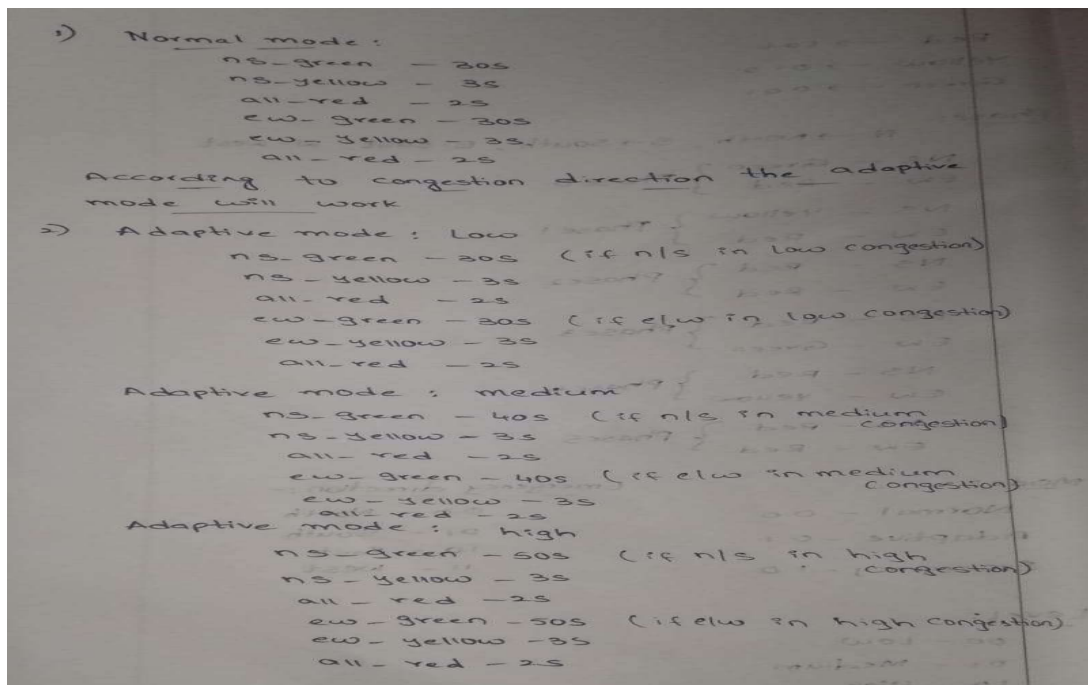 1) Normal mode :
ns-green - 30s
ns-yellow - 3s
all-red - 2s
ew-green - 30s
ew-yellow - 3s
all-red - 2s
According to congestion direction the adaptive
mode will work
2) Adaptive mode : Low
ns-green - 30s (if n/s in low congestion)
ns-yellow - 3s
all-red - 2s
ew-green - 30s (if e/w in low congestion)
ew-yellow - 3s
all-red - 2s
Adaptive mode : medium
ns-green - 40s (if n/s in medium
congestion)
ns-yellow - 3s
all-red - 2s
ew-green - 40s (if e/w in medium
congestion)
ew-yellow - 3s
all-red - 2s
Adaptive mode : high
ns-green - 50s (if n/s in high
congestion)
ns-yellow - 3s
all-red - 2s
ew-green - 50s (if e/w in high congestion)
ew-yellow - 3s
all-red - 2s